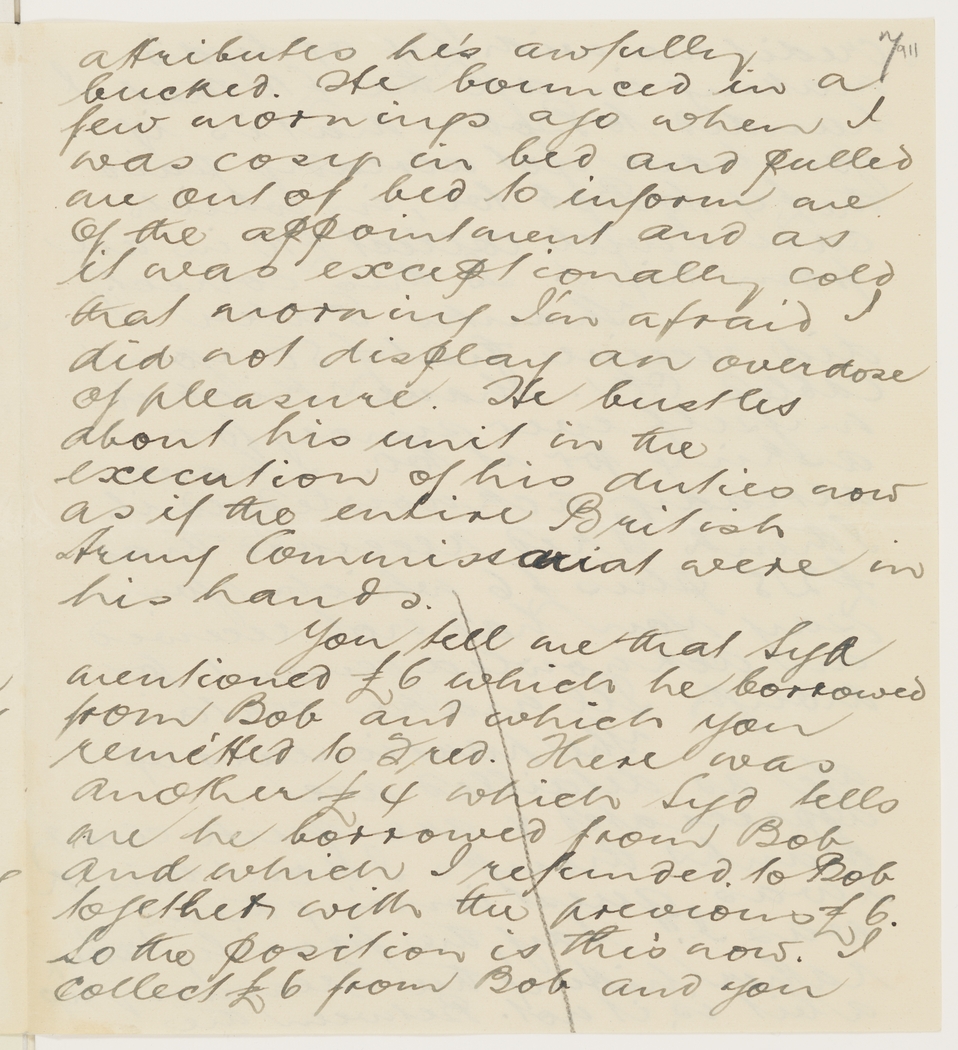 attributes he's awfully
bucked. He bounced in a
few mornings ago when I
was cosy in bed and pulled
me out of bed to inform me
of the appointment and as
it was exceptionally cold
that morning I'm afraid I
did not display an overdose
of pleasure. He bustles
about his unit in the
execution of his duties now
as if the entire British
Army Commissariat were in
his hands.
You tell me that Syd
mentioned £6 which he borrowed
from Bob and which you
remitted to Fred. There was
another £4 which Syd tells
me he borrowed from Bob
and which I refunded to Bob
together with the previous £6.
So the position is this now. I
collect £6 from Bob and you